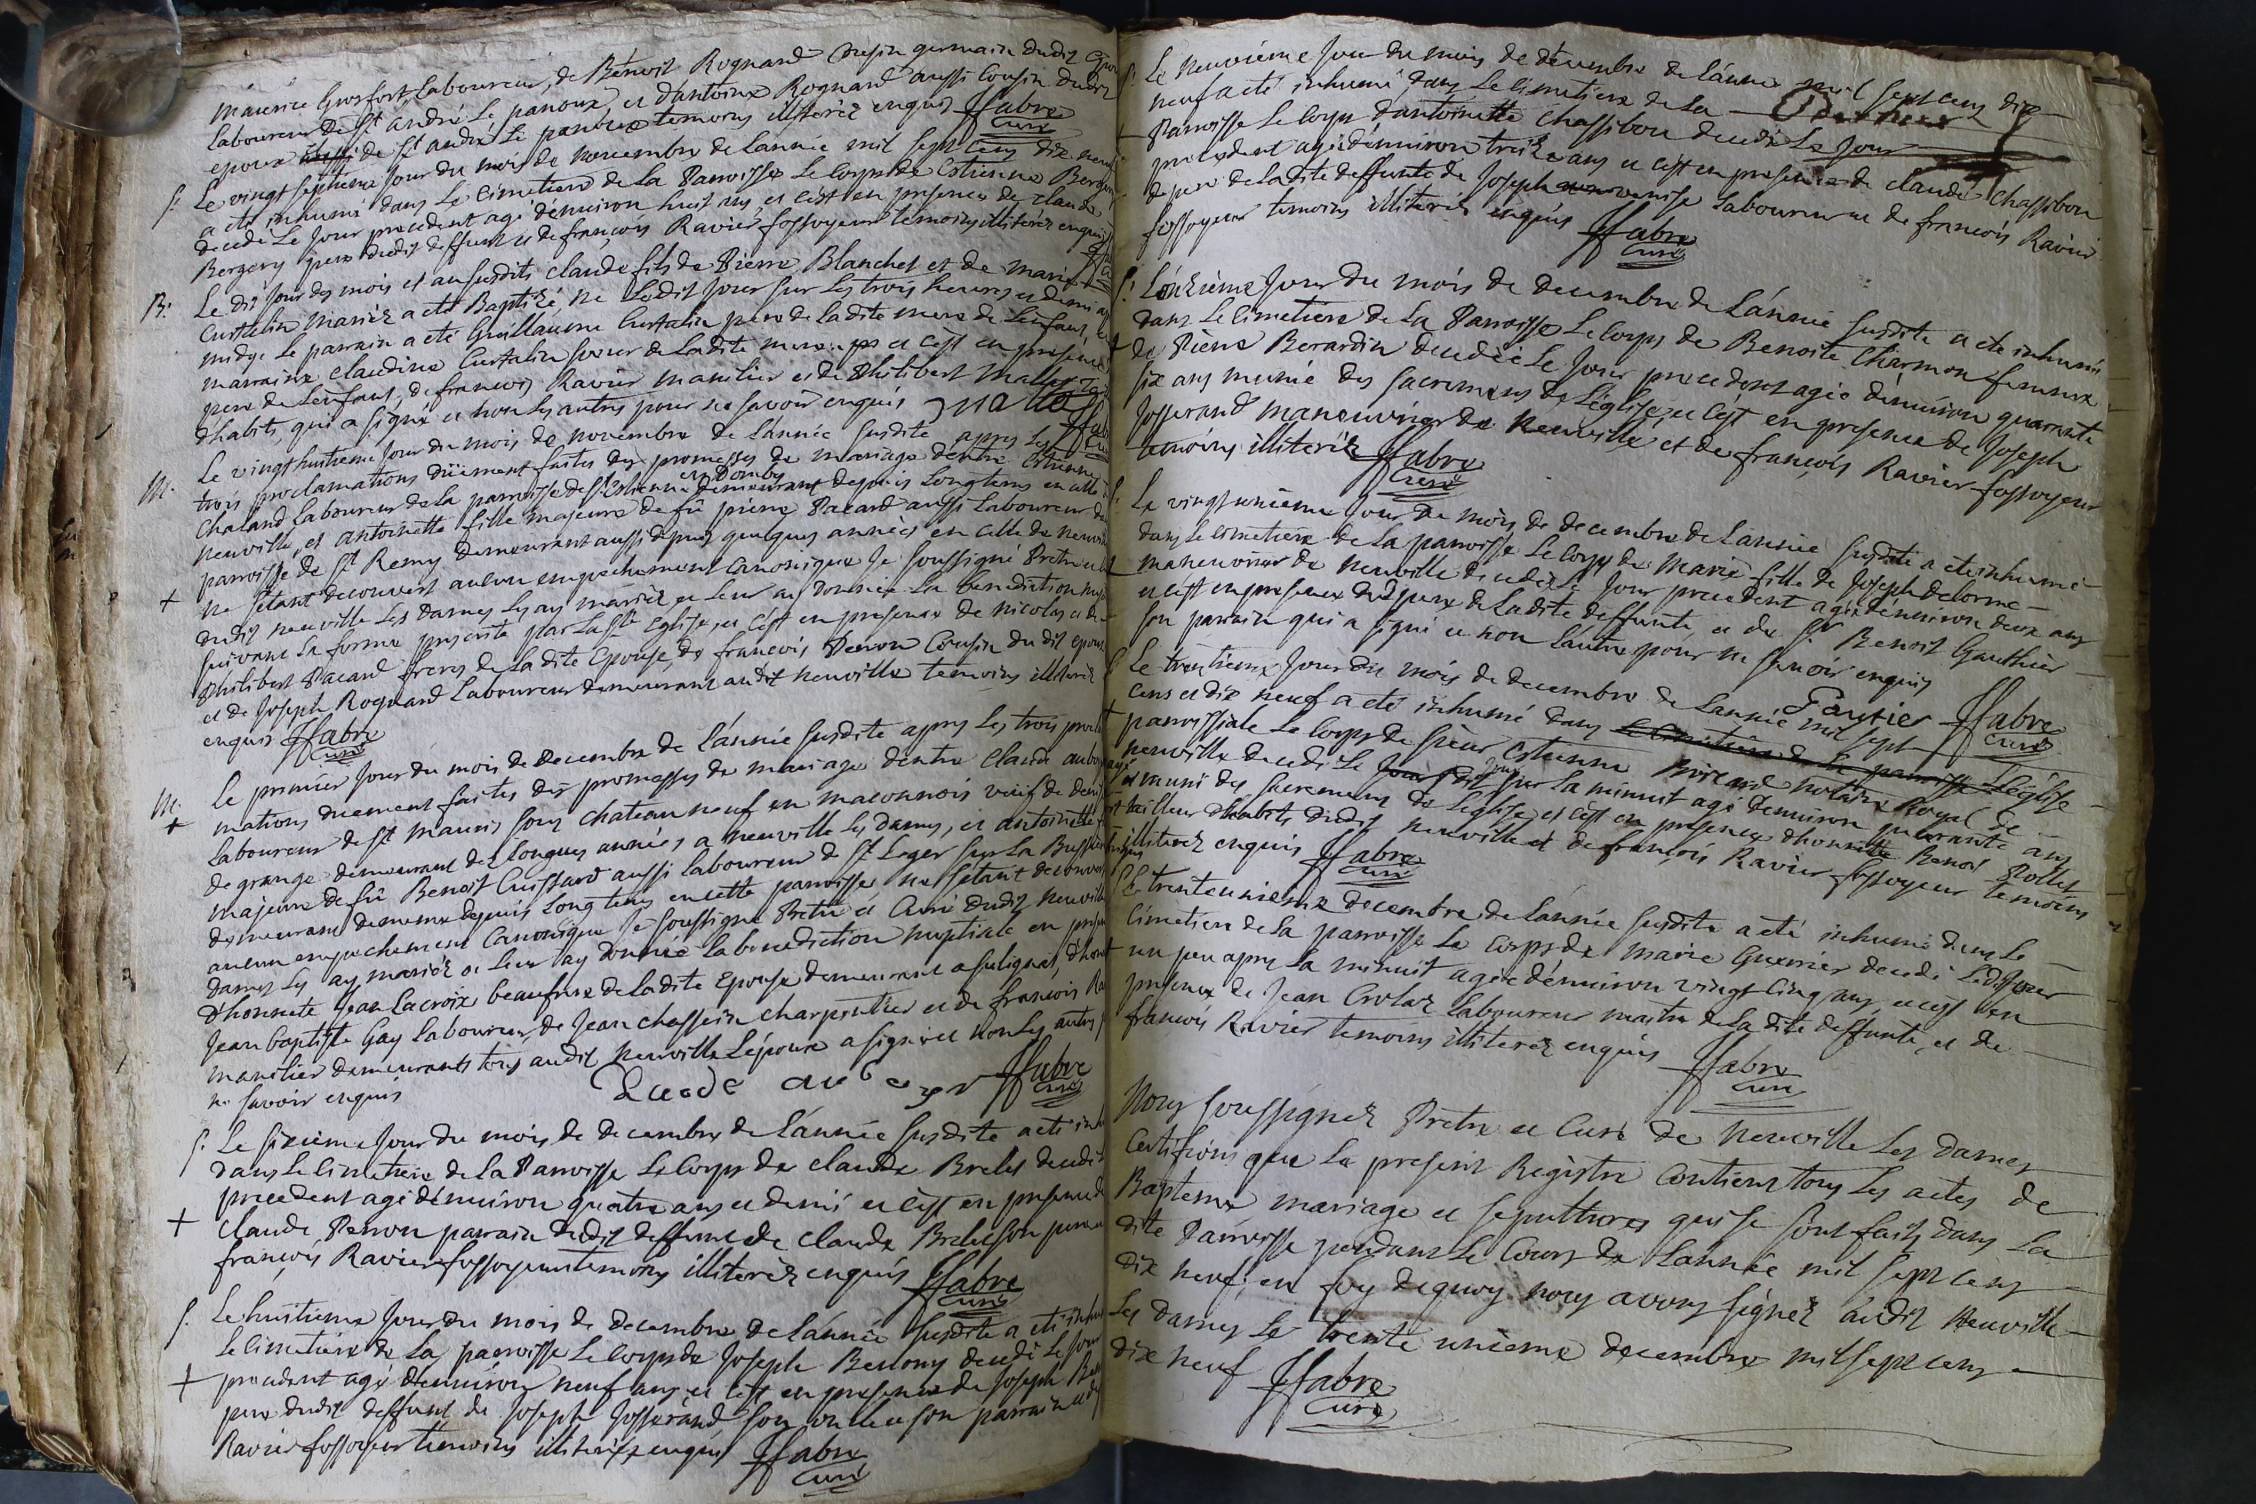 maurice Grosfort, Laboureur, de Benoit Rognard Cousin germain dudit
Laboureur de St andré Le panoux, et dantoine Rognard aussi Cousin dudit
epoux de St andré Le panoux temoins illiterez enquis ffabre curé
S. Le vingt septieme jour du mois de novembre de lannée mil sept cens dix neuf
a eté inhumé dans Le Cimetiere de La Parroisse Le Corps de Estienne
decedé Le jour precedent agé dénuiron huit ans et cést en presence de claude
Bergery pere dudit deffunt et de françois Ravier fossoyeur temoins illiterez enquis
B. Le dit jour des mois et an susdits claude fils de Pierre Blanchet et de marie
Curtelin mariéz a eté Baptizé né Ledit jour sur Les trois heures et demi
midy. Le parrain a eté Guillaume Curtelin pere de ladite mere de Lénfant,
marraine claudine Curtelin soeur de Ladite mere et cést en presence
pere de Lenfant, de francois Ravier manilier et de Philibert mallet
dhabits qui a signé et non Les autres pour ne savoir enquis mallet
M. Le vingt huitieme jour du mois de novembre de lánnée susdite apres Les
trois proclamations düement faites des promesses de mariage dentre Estienne
Chaland Laboureur de La parroisse de St Estienne en Dombes demeurant depuis Longtems en celle
neuville, et antoinette fille majeure de fû pierre Pacard aussi Laboureur de
parroisse de St Remy demeurant aussi depuis quelques années en celle de neuville
ne sétant decouvert aucun empechement Canonique Je soussigné Pretre et
dudit neuville Les Dames Les ay mariéz et Leur ay Donnée La benediction
suivant La forme prescrite par La Ste Eglise, et cést en presence de nicolas et de
Philibert Pacard freres de La dite Epouse, de francois Perron Cousin du dit epoux
et de Joseph Rognard Laboureur demeurant audit neuville temoins illiterez
enquis ffabre curé
M. Le premier jour du mois de Decembre de Lánnée susdite apres Les trois
mations duement faites des promesses de mariage dentre Claude
Laboureur de St mauris sous chateauneuf en maconnois veuf de
de grange demeurant dez Longues années a neuville Les dames, et antoinette
majeure de fû Benoit Cuissard aussi Laboureur de St Leger sur La Bussiere
demeurant de meme depuis Longtems en cette parroisse, ne sétant decouvert
aucun empechement Canonique Je soussigné Pretre et Curé dudit neuville
Dames Les ay mariéz et Leur ay donnée La benediction nuptiale en
dhonnete Jean Lacroix beaufrere de ladite Epouse demeurant a suligna,
Jean baptiste Gay Laboureur, de Jean chassein charpentier et de francois
manilier demeurants tous audit neuville Lépoux a signé et non Les autres
ne savoir enquis ffabre curé
S. Le sixieme jour du mois de decembre de Lánnée susdite a eté
dans Le Cimetiere de La Parroisse Le Corps de claude Brelet decedé
precedent agé dénuiron quatre ans et demi et cést en presence de
claude Perron parrain dudit deffunt de claude Brelet son pere
françois Ravier fossoyeur temoins illiteréz enquis ffabre curé
S. Le huitieme jour du mois de decembre de Lánnée susdite a eté
Le Cimetiere de La parroisse Le Corps de Joseph Benony decedé Le jour
precedent agé dénuiron neuf ans et cést en presence de Joseph
pere dudit deffunt de Joseph Josserand son oncle et son parrain
Ravier fossoyeur temoins illiteréz enquis ffabre curé
S. Le neuviéme jour du mois de décembre de lánnée mil sept cens dix
neuf a eté inhumé dans Le Cimetiere de La
Parroisse Le Corps dantoinette Chassibou decedé Le jour
precedent agée dénuiron treize ans et cést en presence de claude Chassibou
pere de Ladite deffunte de Joseph venise Laboureur et de francois Ravier
fossoyeur temoins illiterez enquis ffabre curé
S. Lónzieme jour du mois de decembre de Lánnée susdite a eté inhumé
dans Le Cimetiere de La Parroisse Le Corps de Benoite Charmon femme
de Pierre Berardin decedée Le jour precedent agée dénuiron quarante
six ans munie des sacremens de Léglise, et cést en presence de Joseph
Josserand maneuvrier de neuville et de françois Ravier fossoyeur
temoins illiteréz ffabre curé
S. Le vingt unieme jour du mois de decembre de Lannée susdite a eté inhumé
dans Le Cimetiere de La parroisse Le Corps de marie fille de Joseph delorme
maneuvrier de neuville decedée Le jour precedent agée dénuiron deux ans
et cést en presence dudit pere de Ladite deffunte, et de Sr Benoit Gauthier
son parrain qui a signé et non Lautre pour ne savoir enquis
Gautier ffabre curé
S. Le trentieme jour du mois de decembre de Lannée mil sept
cens et dix neuf a eté inhumé dans Le Cimetiere de La parroisse Léglise
parroissiale Le Corps de sieur Estienne Brirand notaire Royal de
neuville decedé Le jour sur La minuit agé denuiron quarante ans
et muni des sacremens de Léglise, et cést en presence dhonnete Benoit Pollet
tailleur dhabits dudit neuville et de françois Ravier fossoyeur temoins
illiterez enquis ffabre curé
S. Le trente unieme decembre de Lannée susdite a eté inhumé dans Le
Cimetiere de La parroisse Le Corps de marie Guerrier decedé Ledit jour
un peu apres La minuit agée dénuiron vingt Cinq ans, et cést en
presence de Jean Crolaz Laboureur maitre de La dite deffunte, et de
francois Ravier temoins illiterez enquis ffabre curé
Nous soussignéz Pretre et Curé de neuville Les Dames
Certifions que Le present Registre Contient tous Les actes de
Bapteme mariage et sepultures qui se sont faits dans La
dite Parroisse pendant Le Cours de Lánnée mil sept cens
dix neuf, en foy dequoy nous avons signéz audit neuville
Les dames Le trente unieme decembre mil sept cens
dix neuf ffabre curé